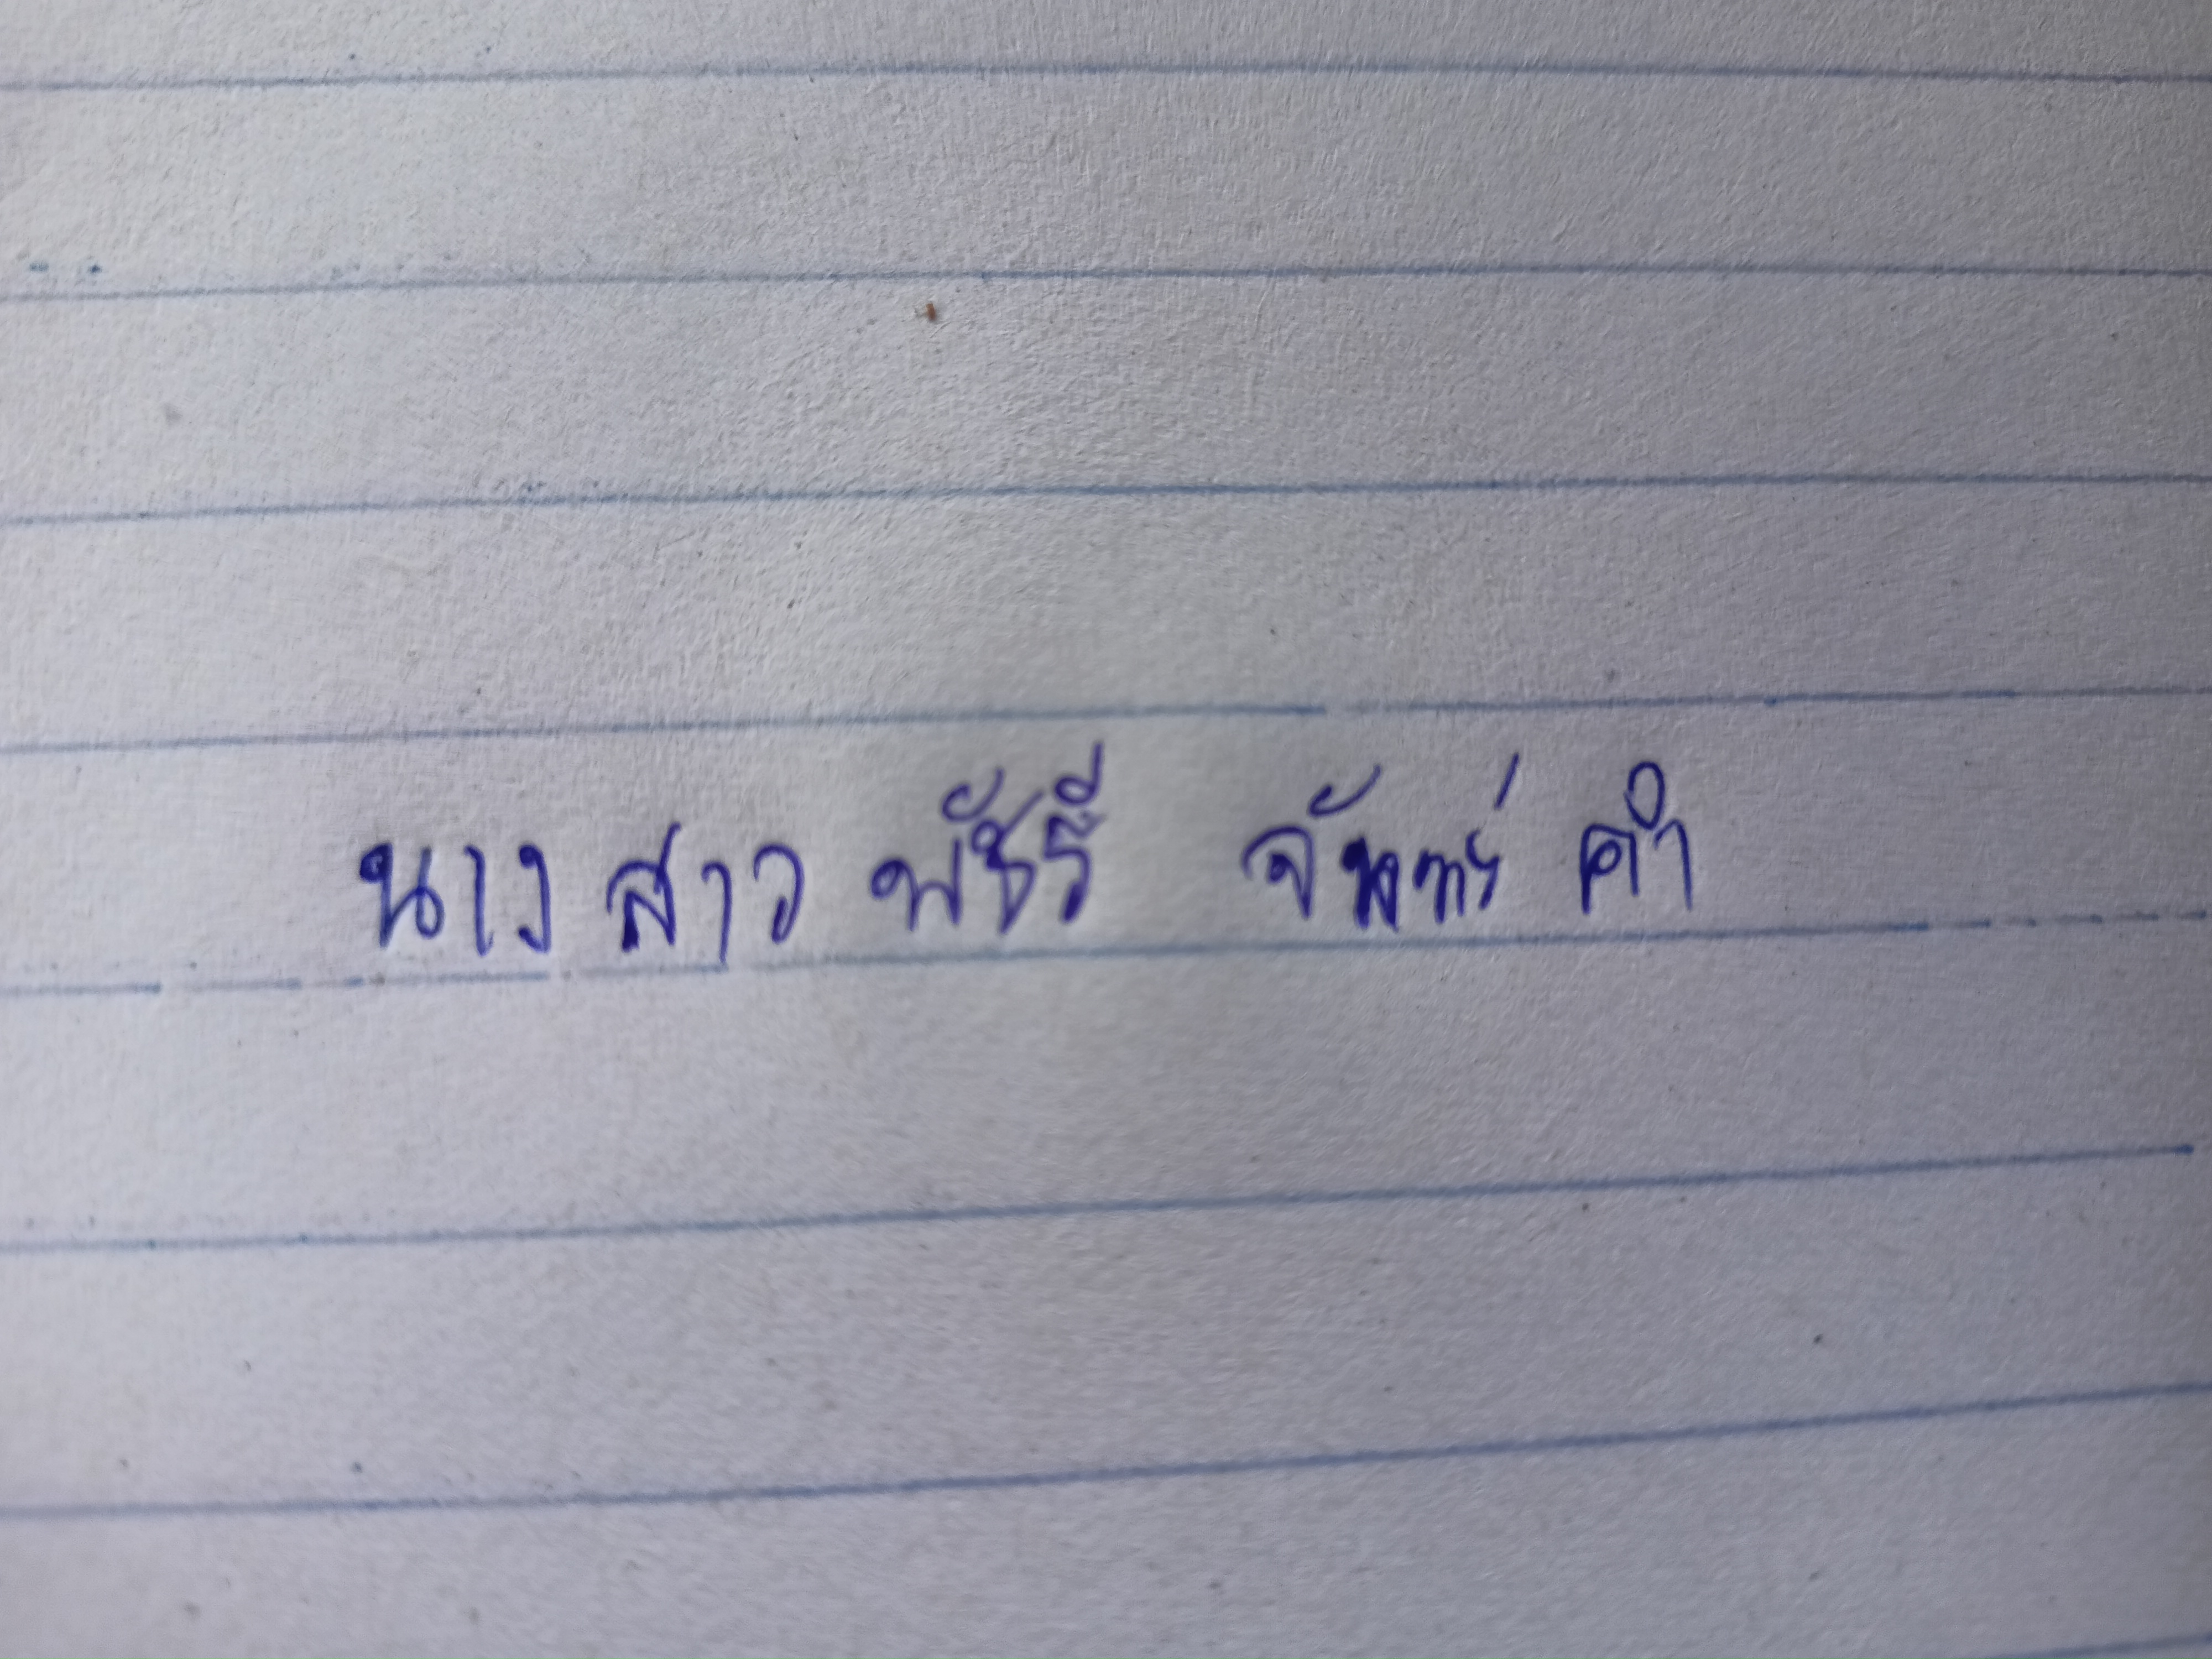 นางสาว พัชรี จันทร์ คำ